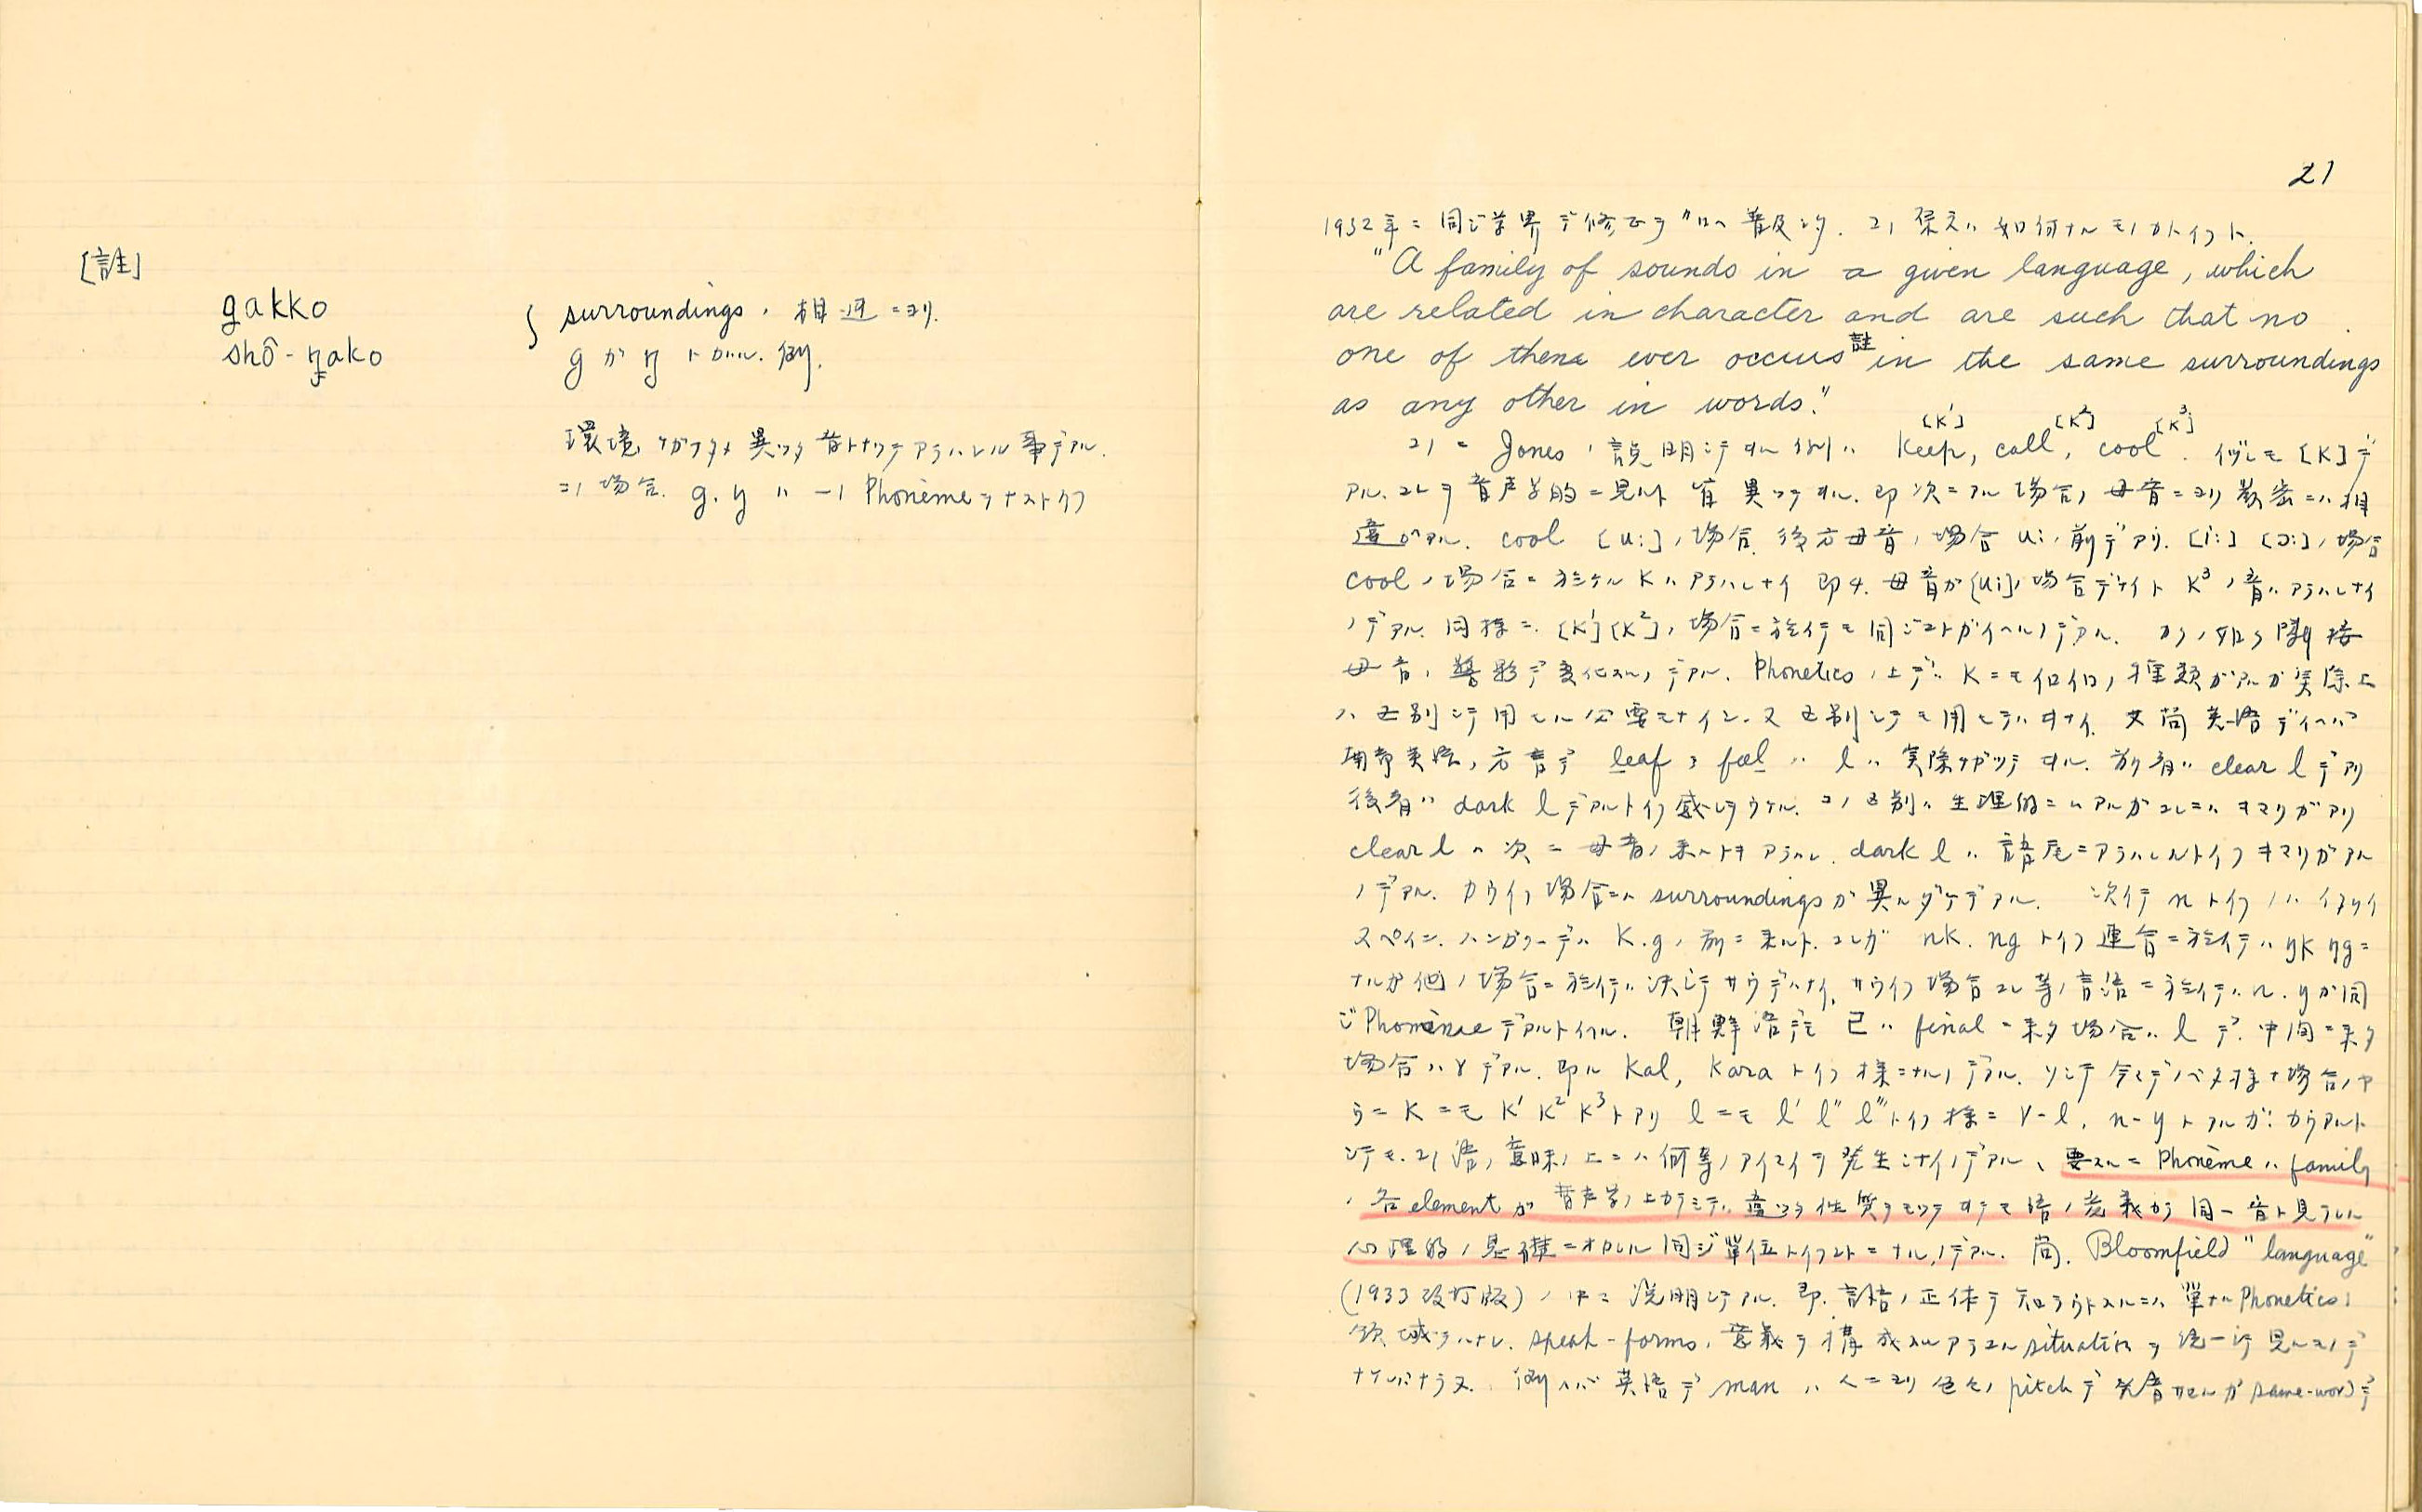 [註]
gakko
shô-ŋako
surroundings ノ 相違ニヨリ.
g ガ ŋ トカハル 例.
環境ノチガフタメ異ッタ音トナッテアラハレル事デアル.
コノ場合. g. ŋ ハ 一ノ Phonème ヲナストイフ
21
1932年ニ同ジ学界デ修正ヲ加ヘ普及シタ. コノ考ヘハ如何ナルモノカトイフト.
"A family of sounds in a given language, which
are related in character and are such that no
one of them ever occurs 註 in the same surroundings
as any other in words."
[K¹] [K²] [K³]
コノニ Jones ノ説明シテヰル例ハ Keep, call, cool. 何レモ [K] デ
アル. コレヲ音声学的ニ見ルト皆異ッテヰル. 即次ニアル場合ノ母音ニヨリ厳密ニハ相
違ガアル. cool [u:] ノ場合. 後方母音ノ場合 u: ノ前デアリ. [i:] [ɔ:] ノ場合
cool ノ場合ニ於ケル K ハアラハレナイ 即チ. 母音ガ [u:] ノ場合デナイト K³ ノ音ハアラハレナイ
ノデアル. 同様ニ. [K¹] [K²] ノ場合ニ於イテモ同ジコトガイヘルノデアル. カクノ如ク隣接
母音ノ影響デ変化スルノデアル. Phonetics ノ上デハ K ニモ色々ノ種類ガアルガ実際上
ハ区別シテ用ヒル必要モナイシ. 又区別シテモ用ヒテハヰナイ. 又尚英語デイヘバ
南部英語ノ方言デ leaf ト feel ハ l ハ実際チガッテヰル. 前者ハ clear l デアリ
後者ハ dark l デアルトイフ感ジヲウケル. コノ区別ハ生理的ニハアルガコレニハキマリガアリ
clear l ハ次ニ母音ノ来ルトキアラハレ. dark l ハ語尾ニアラハレルトイフキマリガアル
ノデアル. カウイフ場合ニハ surroundings ガ異ルダケデアル. 次イデ n トイフノハイタリイ
スペイン. ハンガリーデハ K. g ノ前ニ来ルト. コレガ nk. ng トイフ連合ニ於イテハ ŋk ŋg ニ
ナルガ他ノ場合ニ於イテハ決シテサウデハナイ. サウイフ場合コレ等ノ言語ニ於イテハ n. ŋ ガ同
ジ Phonème デアルトイハレル. 朝鮮語デモ ㄹ ハ final ニ来タ場合ハ l デ. 中間ニ来タ
場合ハ r デアル. 即ハ Kal, Kara トイフ様ニナルノデアル. ソシテ今マデノベタ様ナ場合ノヤ
ウニ K ニモ K¹ K² K³ トアリ l ニモ l' l'' l''' トイフ様ニ r-l, n-ŋ トアルガ: カウアルト
シテモ. コノ語ノ意味ノ上ニハ何等ノアイマイヲ発生シナイノデアル、要スルニ Phonème ハ family
ノ各 element ガ音声学ノ上カラミテハ違フタ性質ヲモッテヰテモ語ノ意義カラ同一音ト見ラレル
心理的ノ基礎ニオカレル同ジ單位トイフコトニナルノデアル. 尚. Bloomfield "language"
(1933 改訂版) ノ中ニ説明シテアル. 即. 言語ノ正体ヲ知ラウトスルニハ單ナル Phonetics ノ
領域ヲハナレ. speak-forms ノ意義ヲ構成スルアラユル situation ヲ統一シテ見ルモノデ
ナケレバナラヌ. 例ヘバ英語デ man ハ人ニヨリ色々ノ pitch デ発音サレルガ same-word デ